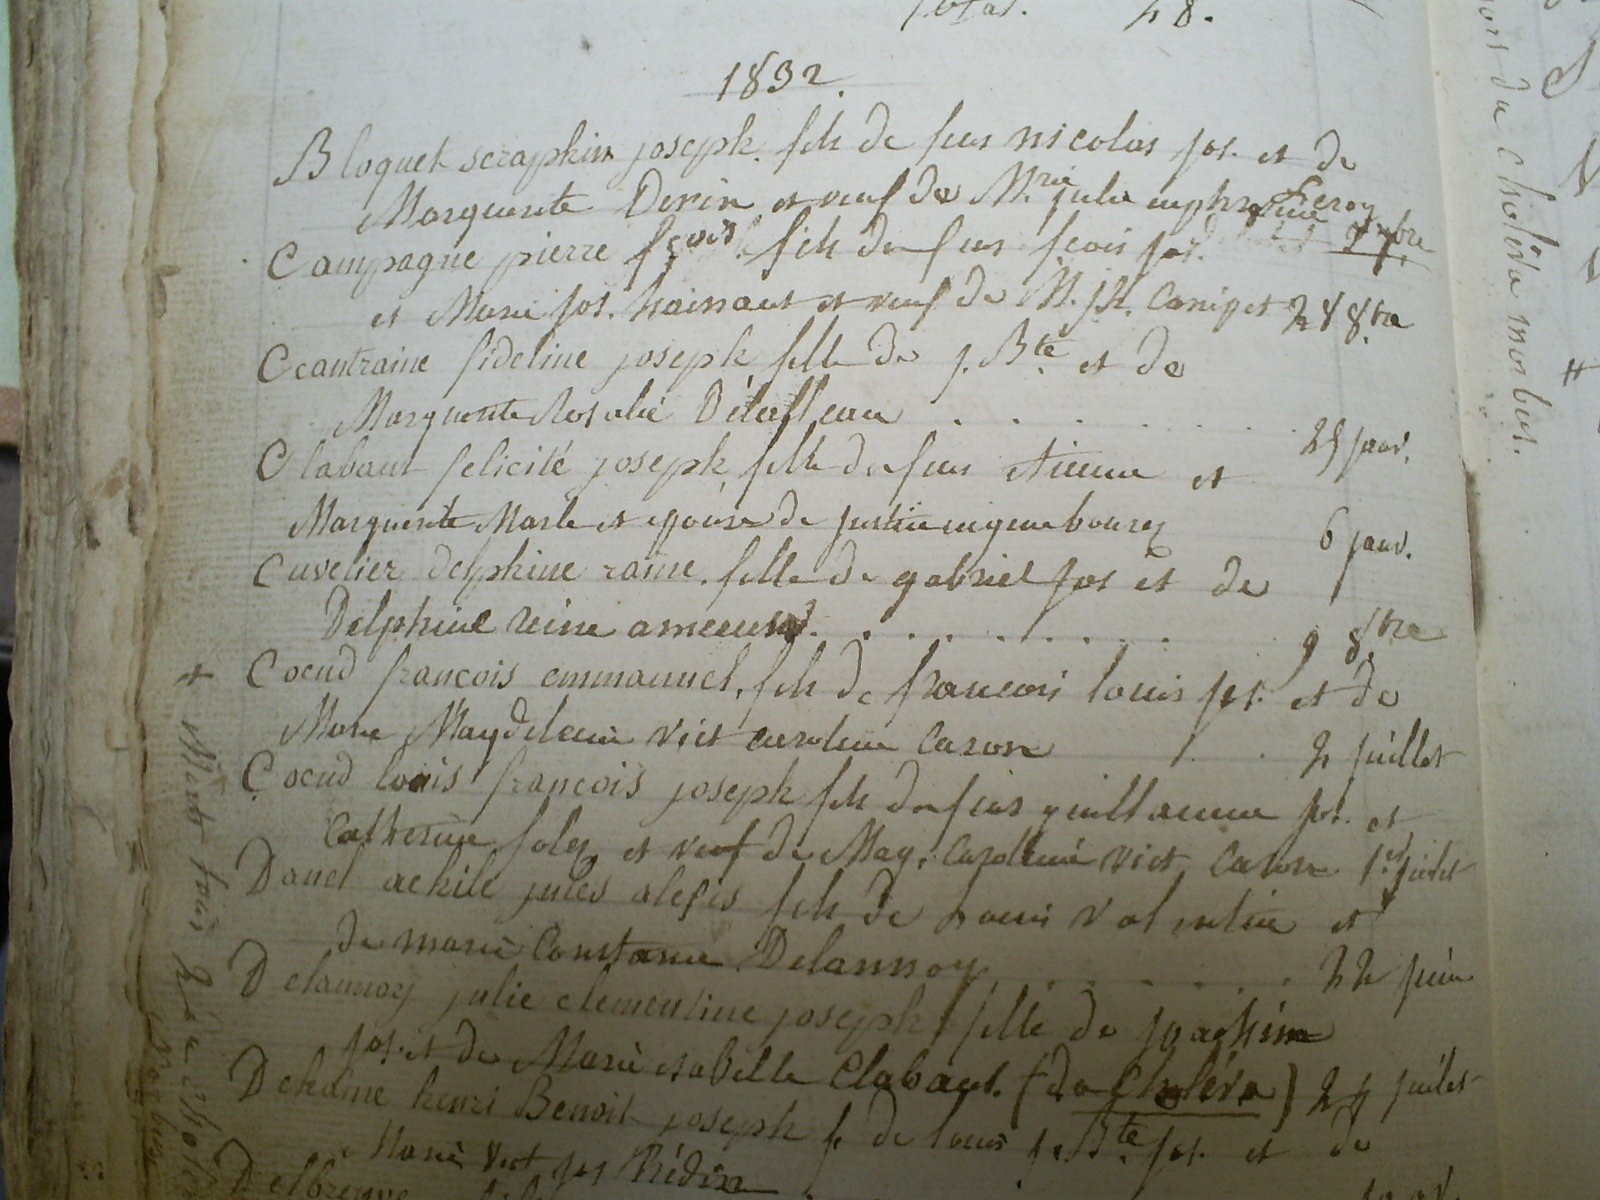 Total. 48.
1832.
Bloquet seraphin joseph. fils de feu nicolas jos. et de
Marguerite Derin et veuf de M.rie julie euphrosine Leroy
Campagne pierre fçois fils de feu fçois jos. 7bre
et Marie jos. hainaut et veuf de M. jh. Canipet 24 8bre
Ccantraine fideline joseph fille de j. Bte. et de
Marguerite Rosalie Délaffeau . . . . . . . 25 janv.
Clabaut felicité joseph fille de feu etienne et
Marguerite Marle et epouse de justin 6 janv.
Cuvelier delphine raine. fille de gabriel jos et de
Delphine reine . . . . . . . . . 9 8bre
Coeud françois emmanuel, fils de francois louis jos. et de
Marie Magdeleine Vict caroline Caron 2 juillet
Coeud louis françois joseph fils de feu guillaume jos. et
Catherine et veuf de Mag. Caroline Vict. Caron 1er juilet
Danel achile jules alexis fils de Louis Valentin et
de marie Constance Delannoy . . . . . . . 22 juin
Delannoy julie clementine joseph fille de joachim
jos. et de Marie isabelle Clabaut. (du Choléra) 24 juilet
Dehaine henri Benoit joseph f. de louis j. Bte. jos. et de
Marie Vict jos Hédin
+ Morts tous du cholera
morbus
mort du Choléra morbus.